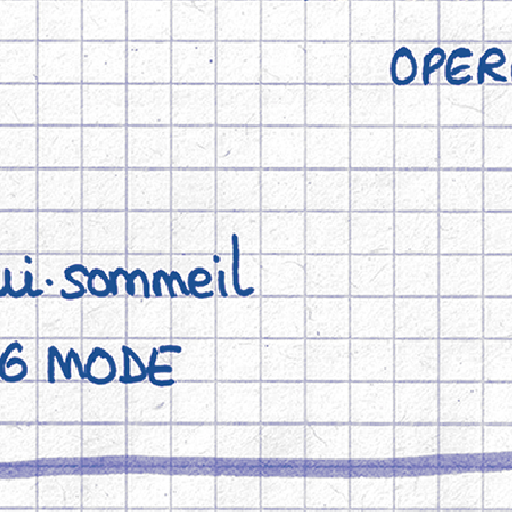 OPER
ui.sommeil
G MODE